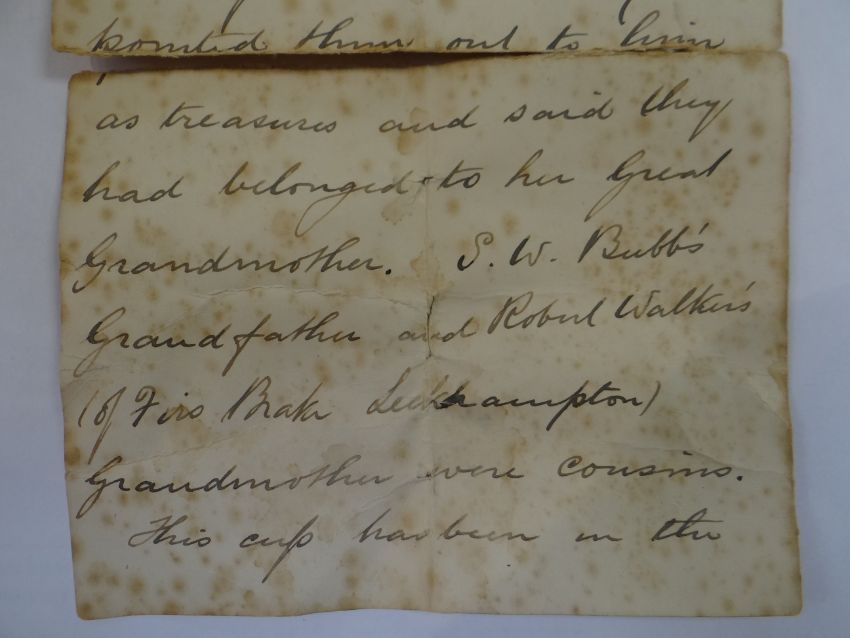 pointed them out to him
as treasures and said they
had belonged to her Great
Grandmother. S. W. Bubb's
Grandfather and Robert Walker's
(of Firs Brake Leckhampton)
Grandmother were cousins.
This cup has been in the